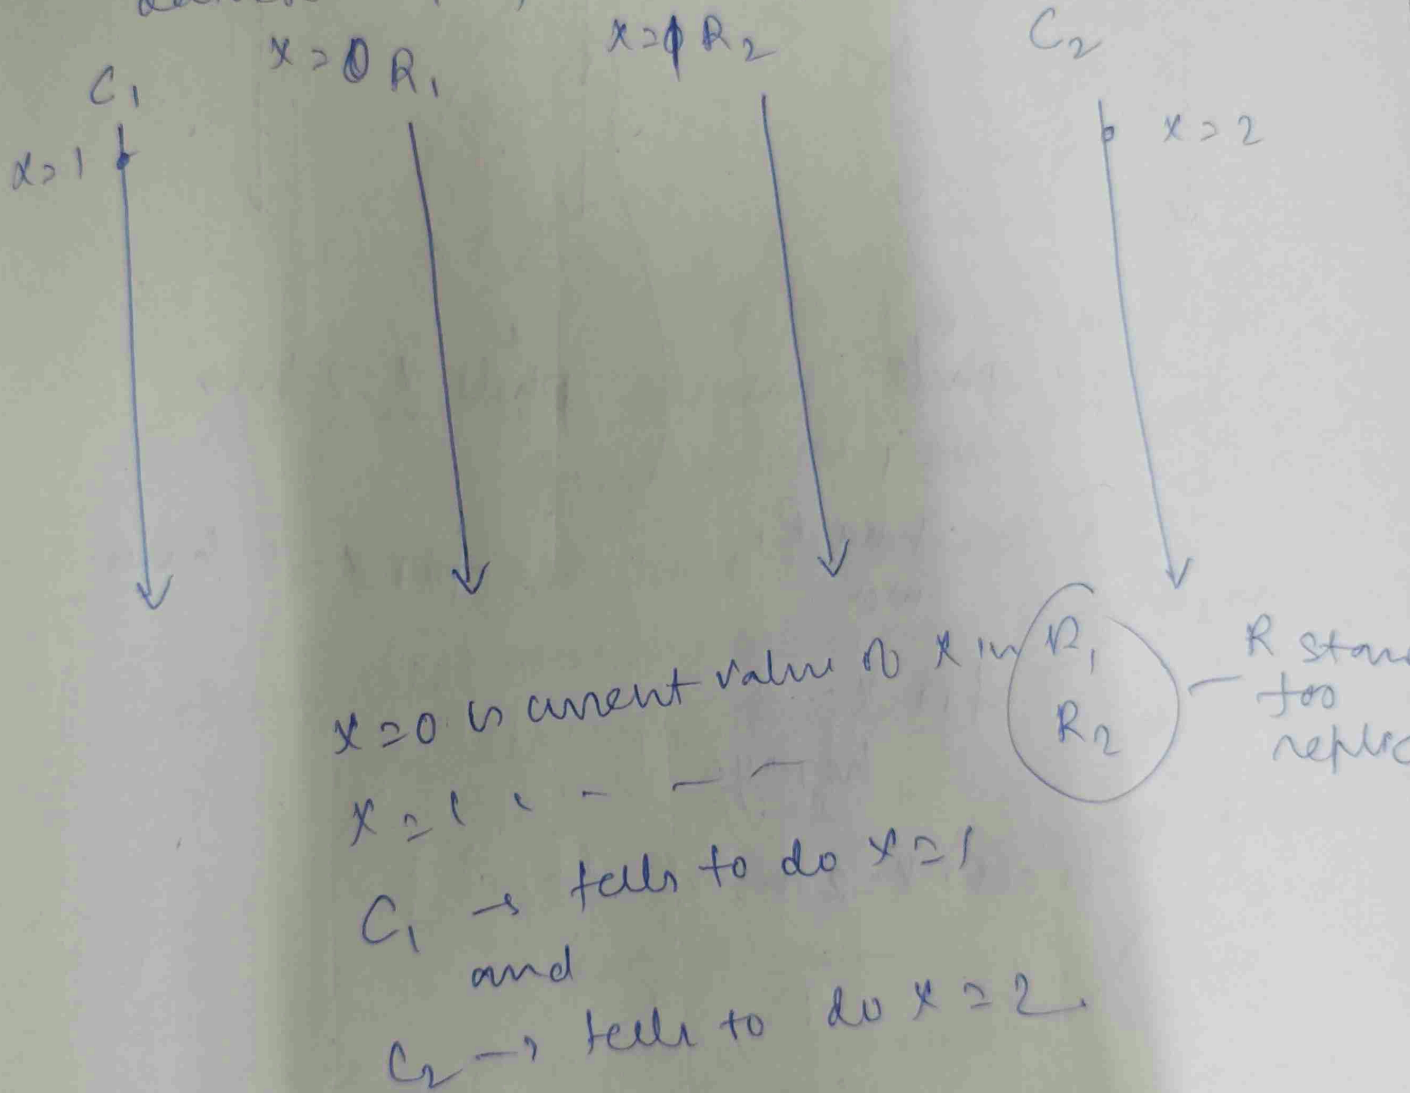 C₁
x=0 R₁
x=1 R₂
C₂
x=1
x=2
x=0 is current value of x in R₁
R₂
R
too
x=1
C₁ → tells to do x=1
and
C₂ → tells to do x=2.